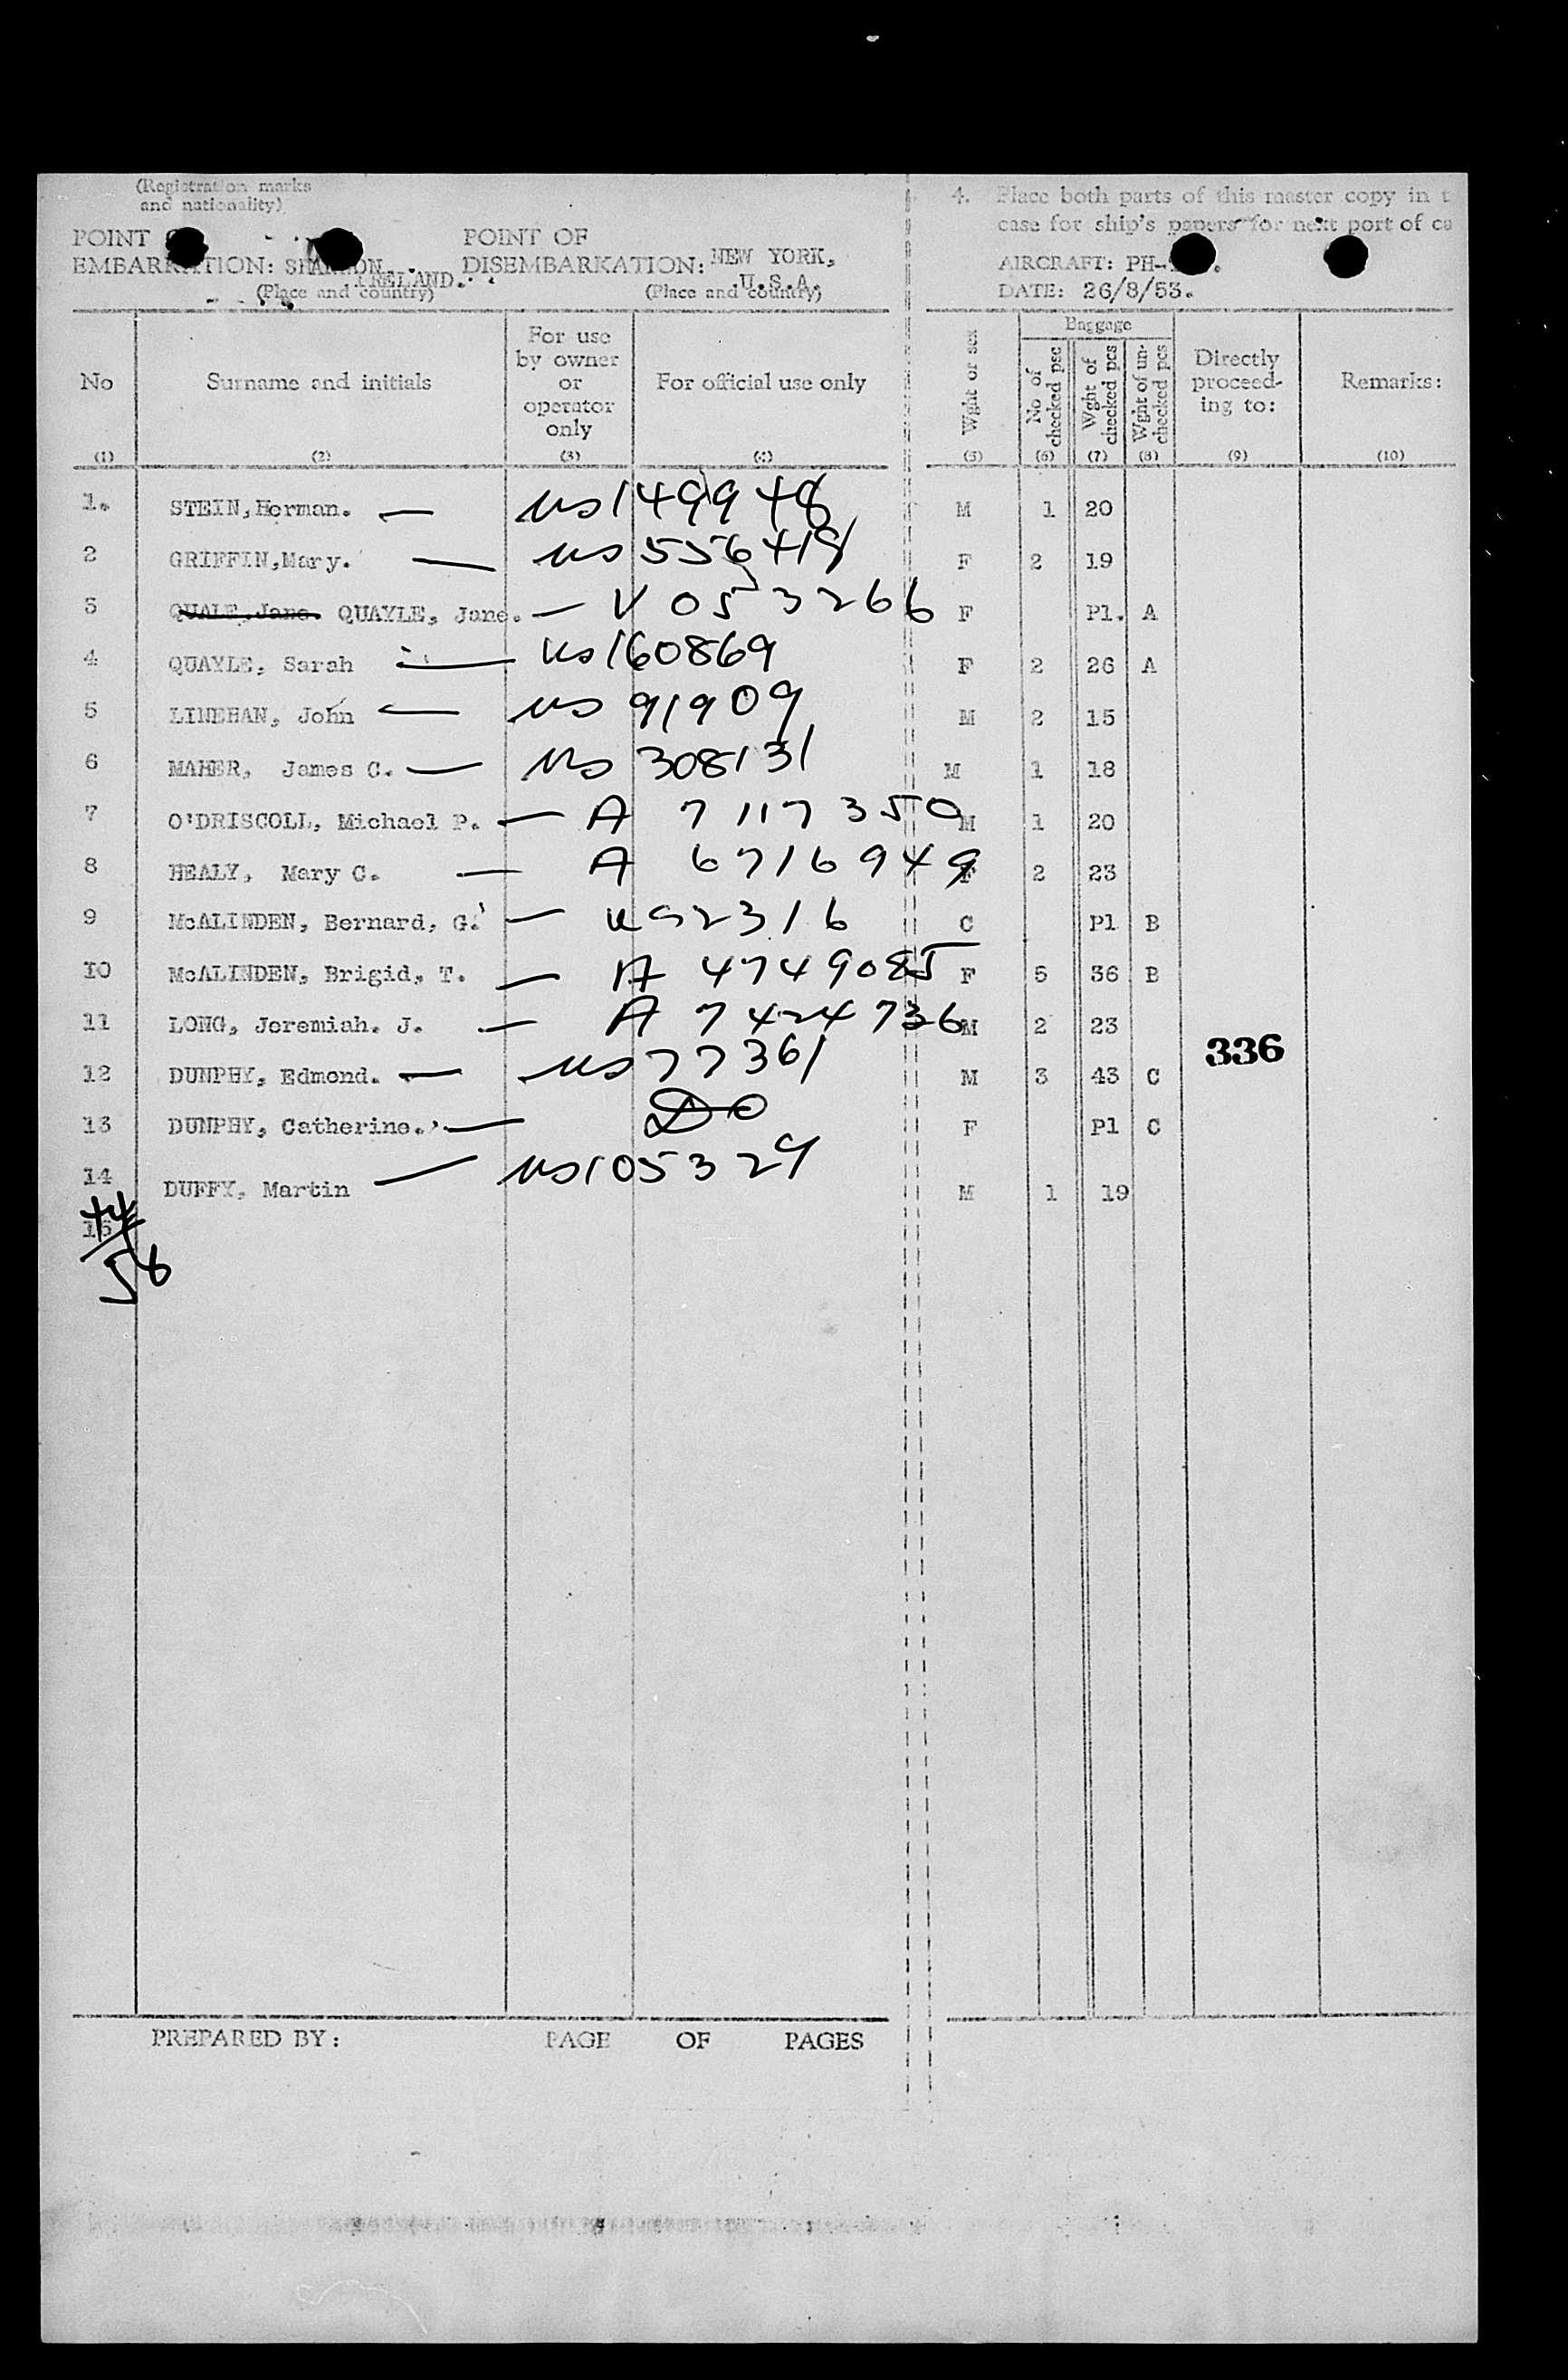 (Registration marks
and nationality)
4. Place both parts of this master copy in
case for ship's papers for next port of
POINT
EMBARKATION: SHANNON,
IRELAND.
(Place and country)
POINT OF
DISEMBARKATION: NEW YORK,
U.S.A.
(Place and country)
AIRCRAFT: PH-
DATE: 26/8/53.
No Surname and initials For use by owner or operator only For official use only Wght or sex Baggage No of checked psc Wght of checked pcs Wght of un-checked pcs Directly proceed-ing to: Remarks:
(1) (2) (3) (4) (5) (6) (7) (8) (9) (10)
1. STEIN, Herman. — US 149948 M 1 20
2 GRIFFIN, Mary. — US 556419 F 2 19
3 QUALE, Jane. QUAYLE, Jane. — V 053266 F Pl. A
4 QUAYLE, Sarah — US 160869 F 2 26 A
5 LINEHAN, John — US 91909 M 2 15
6 MAHER, James C. — US 308131 M 1 18
7 O'DRISCOLL, Michael P. — A 7117350 M 1 20
8 HEALY, Mary C. — A 6716949 F 2 23
9 McALINDEN, Bernard, G. — US 2316 C Pl B
10 McALINDEN, Brigid, T. — A 4749085 F 5 36 B
11 LONG, Jeremiah. J. — A 7424736 M 2 23
336
12 DUNPHY, Edmond. — US 77361 M 3 43 C
13 DUNPHY, Catherine. — DO F Pl C
14 DUFFY, Martin — US 105329 M 1 19
15
44
58
PREPARED BY: PAGE OF PAGES